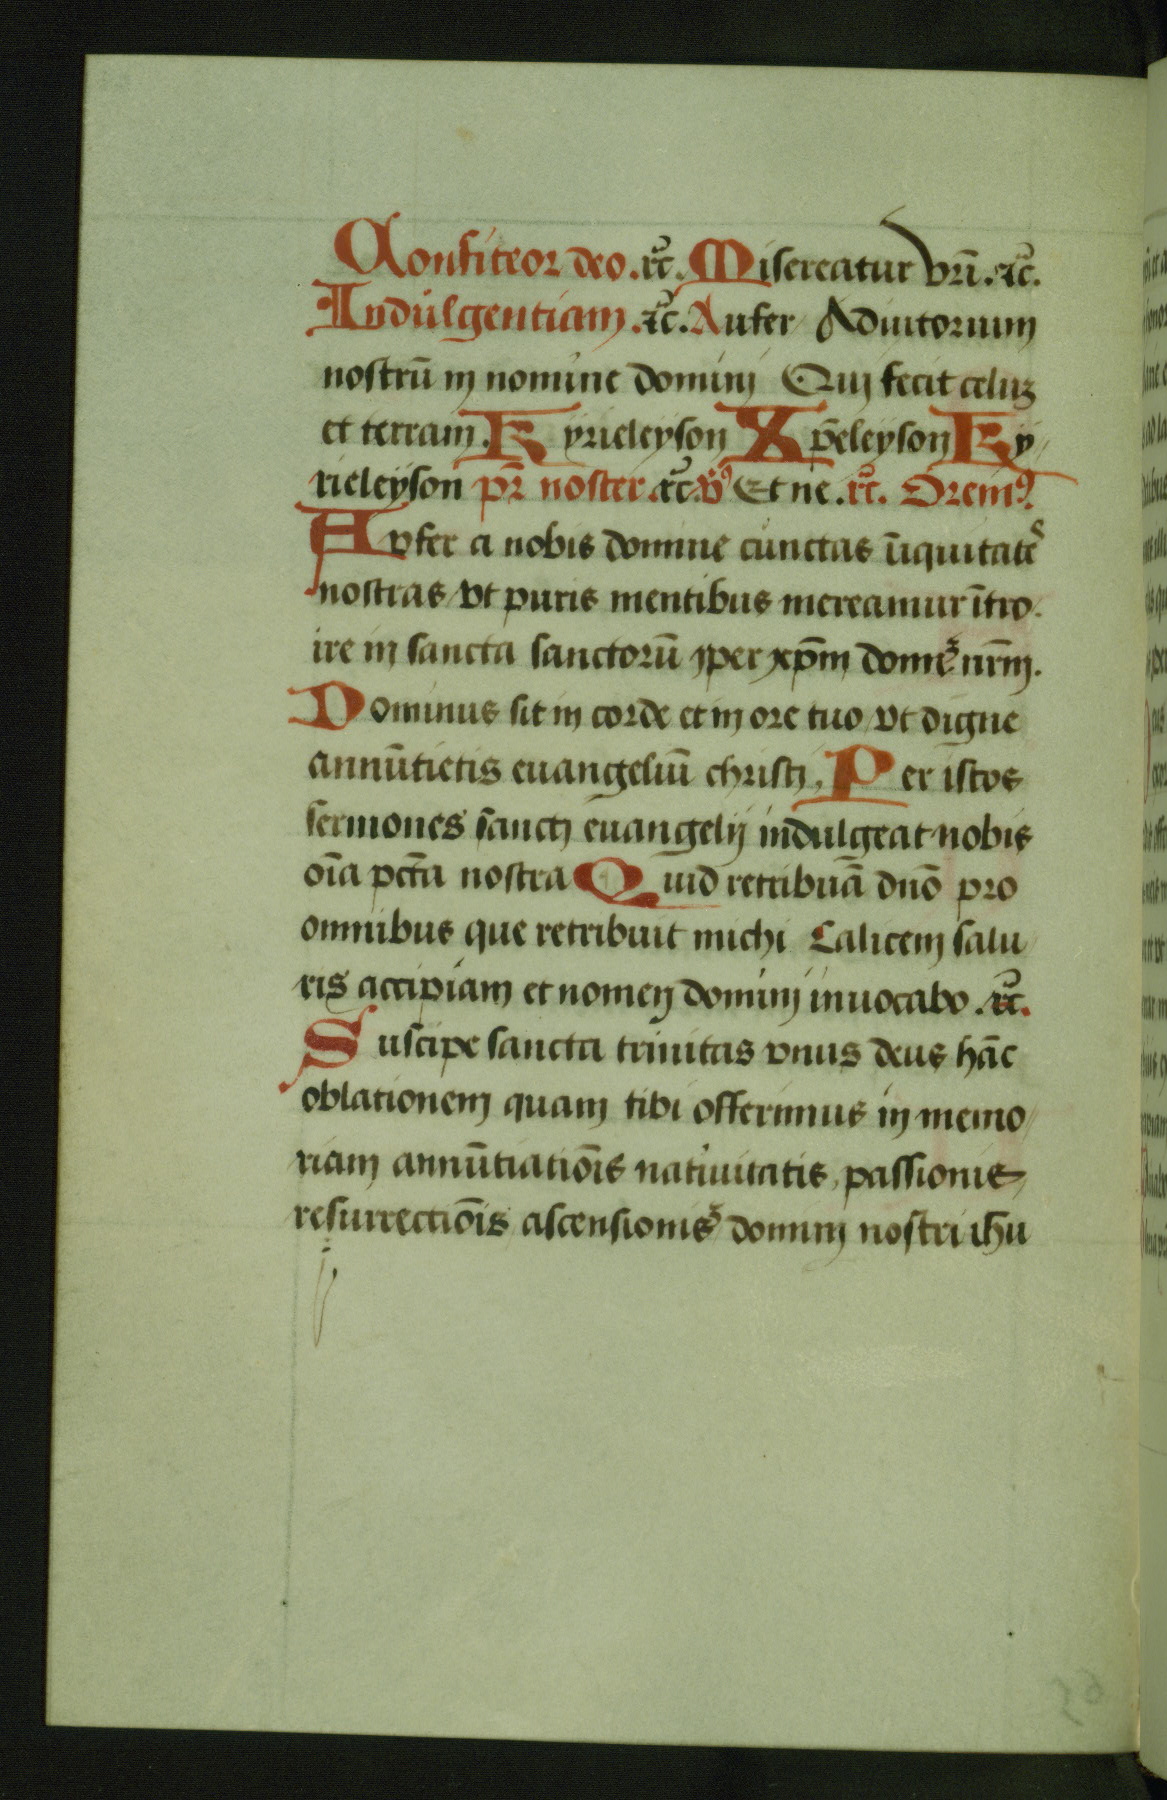 Confiteor deo .rc̄. Misereatur vr̄i. ⁊c̄.
Indulgentiam .⁊c̄. Aufer Adiutorium
nostrū in nomine domini Qui fecit celuȝ
et terram. Kyrieleyson Xp̄eleyson Ky
rieleyson pr̄ noster ⁊c̄ v̊ Et ne .⁊c̄. Oremꝰ
Aufer a nobis domine cunctas īiquitates
nostras vt puris mentibus mereamur ītro
ire in sancta sanctorū per xp̄m domē nr̄m.
Dominus sit in corde et in ore tuo vt digne
annūtietis euangeliū christi, Per istos
sermones sancti euangelij indulgeat nobis
oīa pctā nostra Quid retribuā dn̄o pro
omnibus que retribuit michi Calicem salu
ris accipiam et nomen domini inuocabo .⁊c̄.
Suscipe sancta trinitas vnus deus hāc
oblationem quam tibi offerimus in memo
riam annūtiatiōis natiuitatis, passionis
resurrectiōis ascensionis domini nostri ihu